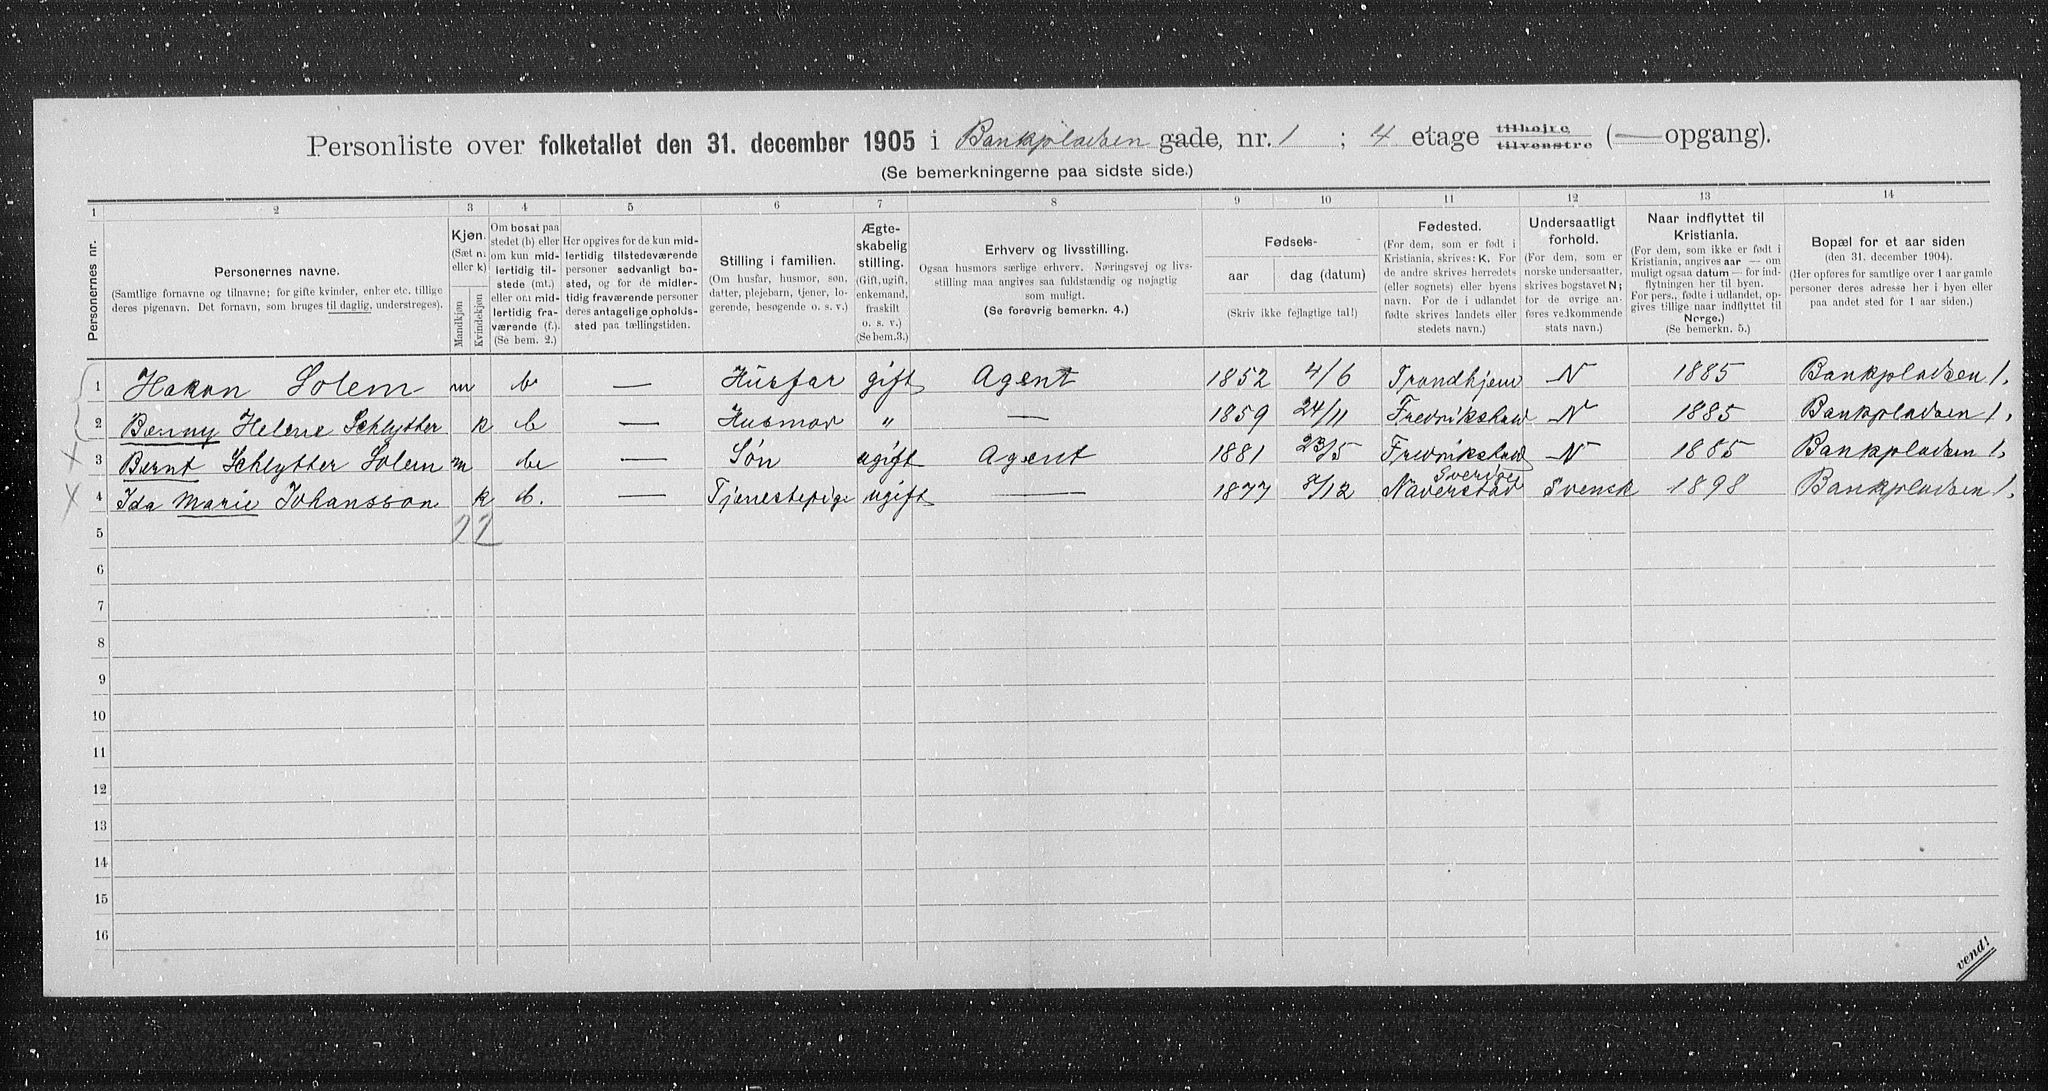 Personliste over folketallet den 31. december 1905 i Bankpladsen gade, nr. 1 ; 4 etage tilhøire tilvenstre (— opgang).
(Se bemerkningerne paa sidste side.)
1 2 3 4 5 6 7 8 9 10 11 12 13 14
Personernes nr.
Personernes navne.
(Samtlige fornavne og tilnavne; for gifte kvinder, enker etc. tillige
deres pigenavn. Det fornavn, som bruges til daglig, understreges).
Kjøn.
(Sæt n.
eller k)
Mandkjøn
Kvindekjøn
Om bosat paa
stedet (b) eller
om kun mid-
lertidig til-
stede (mt.)
eller om mid-
lertidig fra-
værende (f.)
(Se bem. 2.)
Her opgives for de kun mid-
lertidig tilstedeværende
personer sedvanligt bo-
sted, og for de midler-
tidig fraværende personer
deres antagelige opholds-
sted paa tællingstiden.
Stilling i familien.
(Om husfar, husmor, søn,
datter, plejebarn, tjener, lo-
gerende, besøgende o. s. v.)
Ægte-
skabelig
stilling.
(Gift, ugift,
enkemand,
fraskilt
o. s. v.)
(Se bem. 3.)
Erhverv og livsstilling.
Ogsaa husmors særlige erhverv. Næringsvej og livs-
stilling maa angives saa fuldstændig og nøjagtig
som muligt.
(Se forøvrig bemerkn. 4.)
Fødsels-
aar
dag (datum)
(Skriv ikke fejlagtige tal!)
Fødested.
(For dem, som er født i
Kristiania, skrives: K. For
de andre skrives herredets
(eller sognets) eller byens
navn. For de i udlandet
fødte skrives landets eller
stedets navn.)
Undersaatligt
forhold.
(For dem, som er
norske undersaatter,
skrives bogstavet N;
for de øvrige an-
føres vedkommende
stats navn.)
Naar indflyttet til
Kristiania.
(For dem, som ikke er født i
Kristiania, angives aar — om
muligt ogsaa datum — for ind-
flytningen her til byen.
For pers., fødte i udlandet, op-
gives tillige naar indflyttet til
Norge.)
(Se bemerkn. 5.)
Bopæl for et aar siden
(den 31. december 1904).
(Her opføres for samtlige over 1 aar gamle
personer deres adresse her i byen eller
paa andet sted for 1 aar siden.)
1 Hakon Solem m b — Husfar gift Agent 1852 4/6 Trondhjem N 1885 Bankpladsen 1.
2 Benny Helene Schlytter k b — Husmor " — 1859 24/11 Fredrikstad N 1885 Bankpladsen 1.
3 Bernt Schlytter Solem m b — Søn ugift Agent 1881 23/5 Fredrikstad N 1885 Bankpladsen 1.
4 Ida Marie Johansson k b. — Tjenestepige ugift — 1877 /12 Sverige Naverstad Svensk 1898 Bankpladsen 1.
5 2 2
6
7
8
9
10
11
12
13
14
15
16
vend!